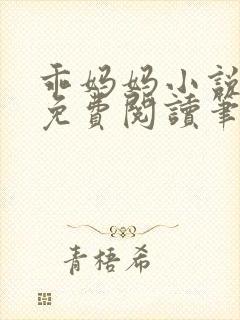 乖妈妈小說
免費閱讀筆
青梧希